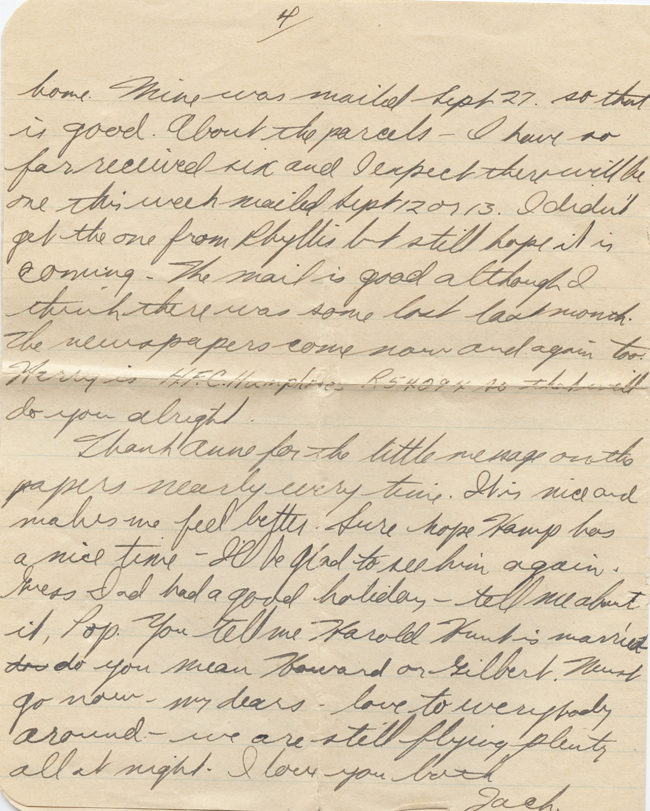 4
home. Mine was mailed Sept 27. so that
is good. About the parcels - I have so
far received six and I expect there will be
one this week mailed Sept 12 or 13. I didn't
get the one from Phyllis but still hope it is
coming - The mail is good although I
think there was some lost last month.
The newspapers come now and again too.
Harry is H.F.C. Humphries R54294 so that will
do you alright.
Thank Anne for the little message on the
papers nearly every time. It is nice and
makes me feel better. Sure hope Hamp has
a nice time - I'll be glad to see him again.
Guess Dad had a good holiday - tell me about
it, Pop. You tell me Harold Hunt is married
do you mean Howard or Gilbert. Must
go now - my dears - love to everybody
around - we are still flying plenty
all at night. I love you both
Jack.